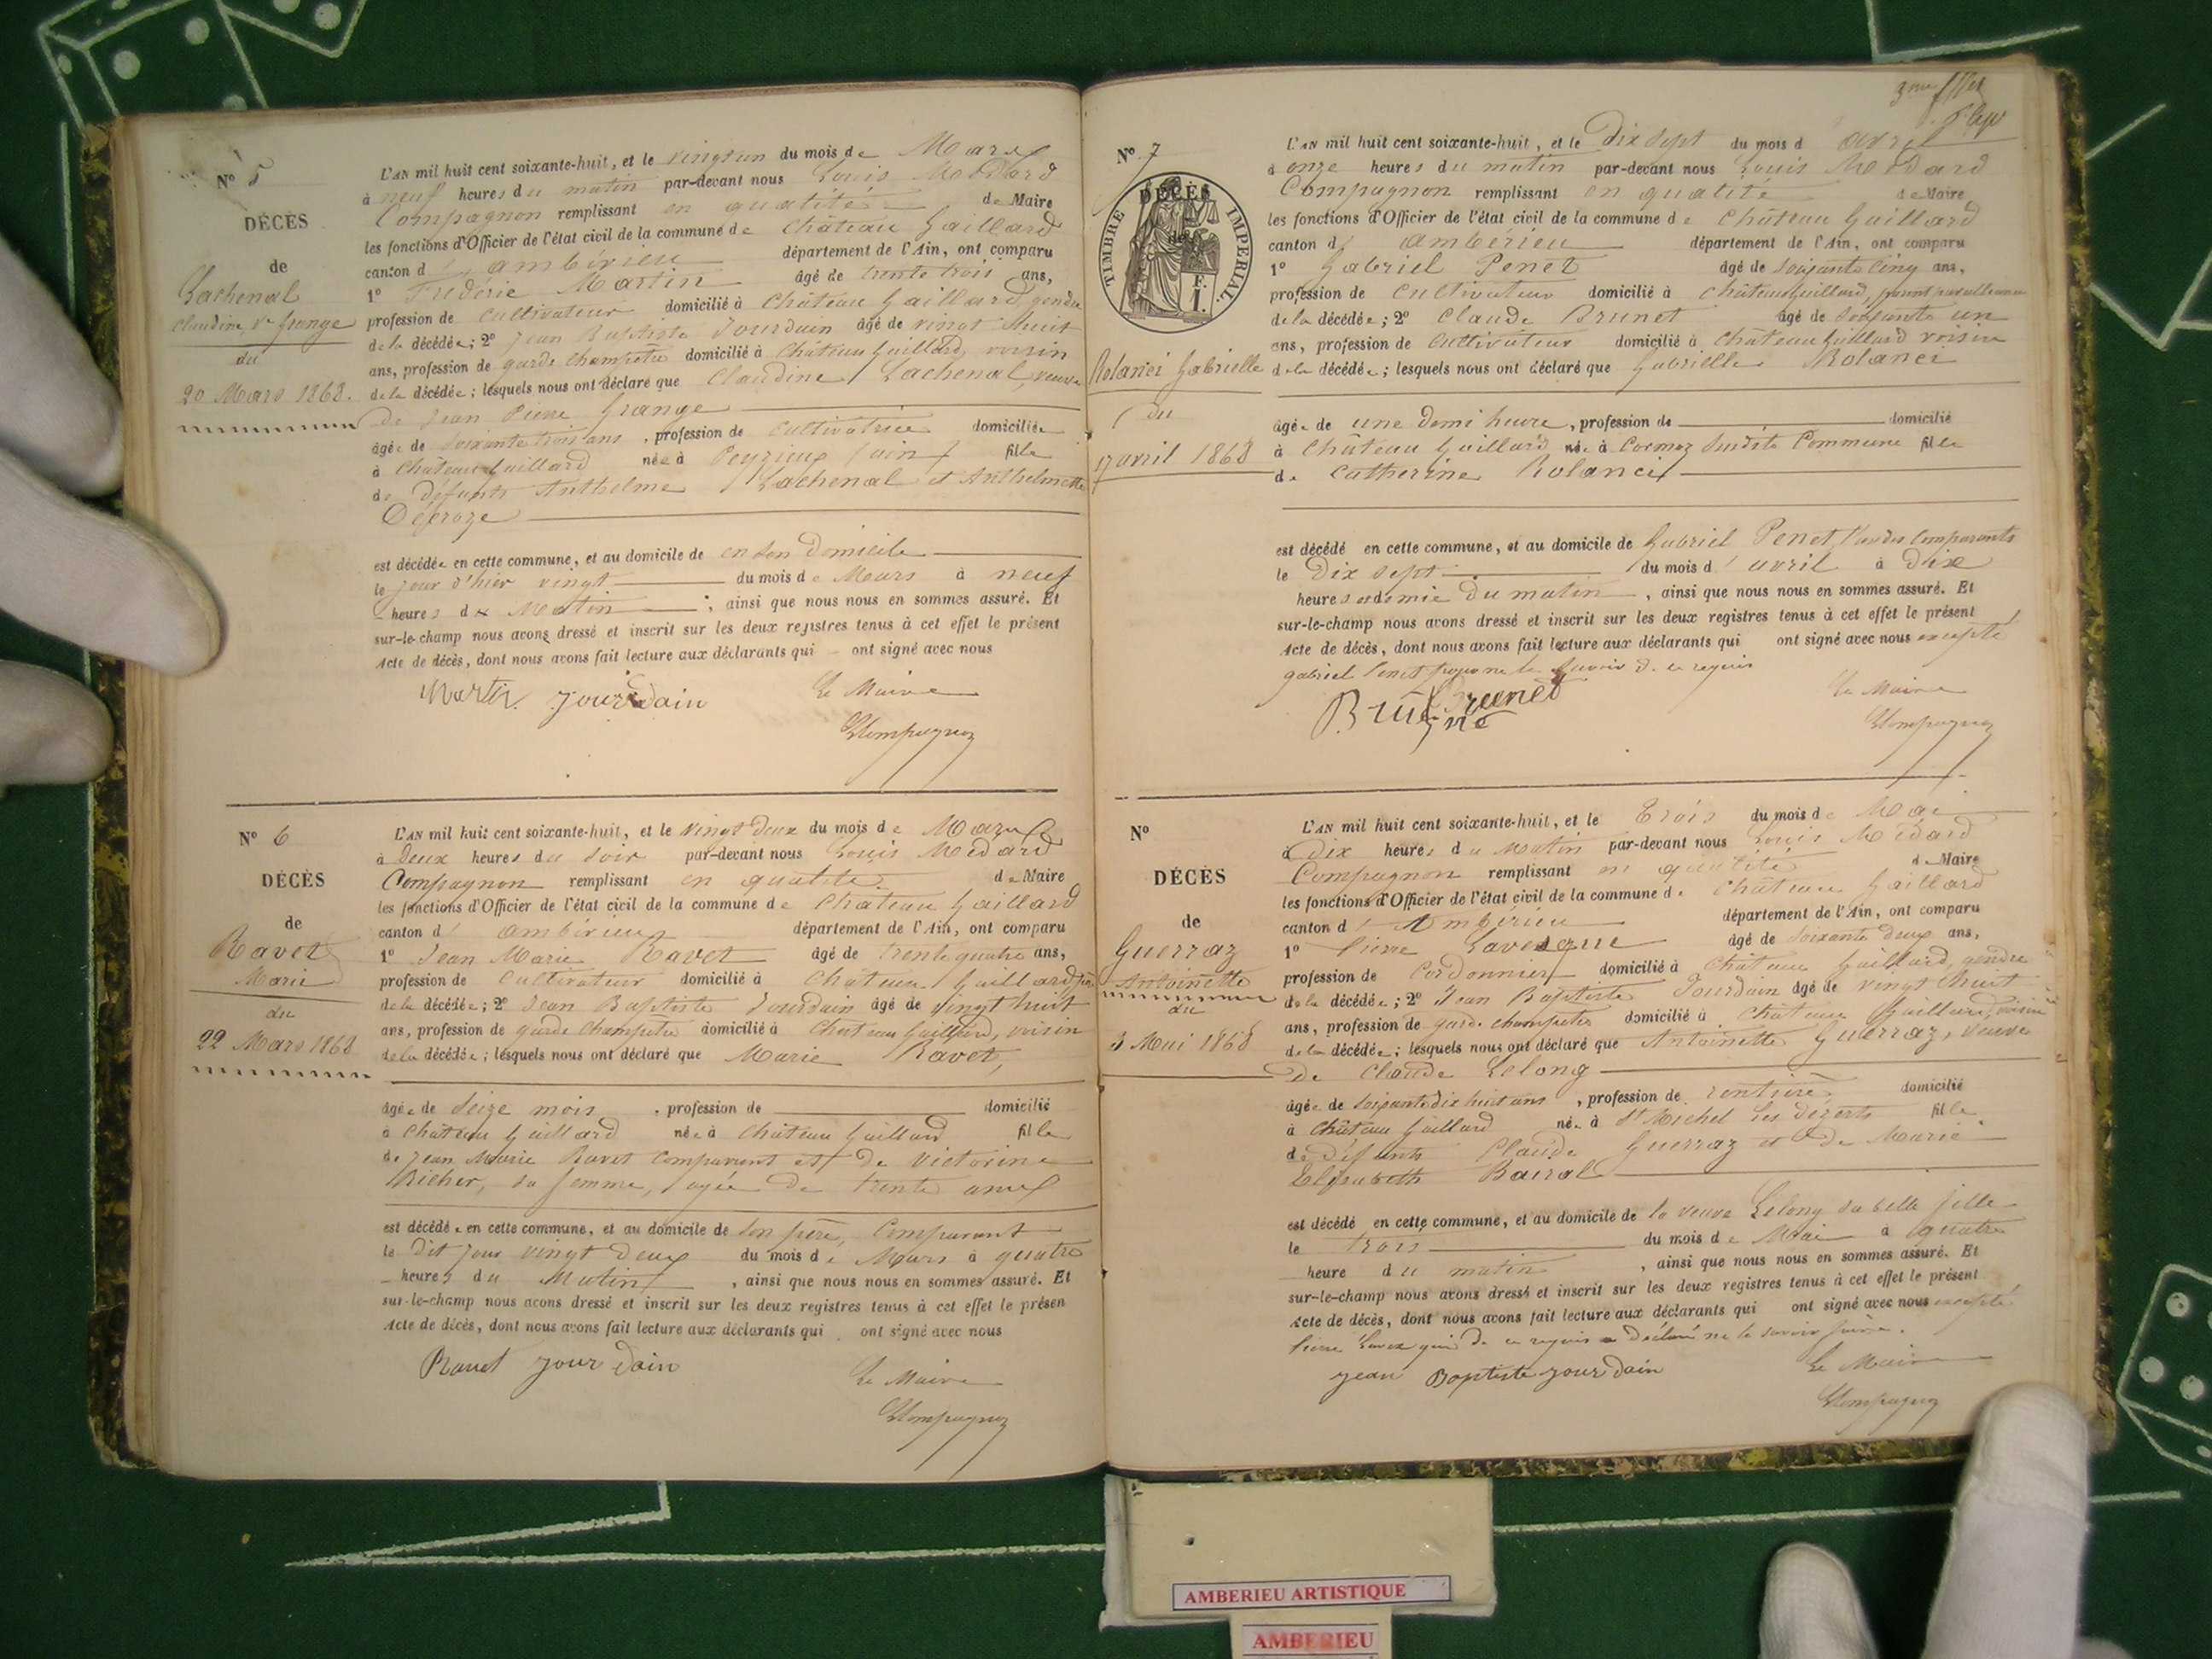 Nº 5
DÉCÈS
de
Lachenal
Claudine Ve Grange
du
20 Mars 1868.
L'AN mil huit cent soixante-huit, et le vingt un du mois de Mars
à neuf heures du matin par-devant nous Louis Médard
Compagnon remplissant en qualité de Maire
les fonctions d'Officier de l'état civil de la commune de Château Gaillard
canton d'ambérieu département de l'Ain, ont comparu
1º Frédéric Martin âgé de trente trois ans,
profession de cultivateur domicilié à Château Gaillard, gendre
de la décédée; 2º Jean Baptiste Jourdain âgé de vingt huit
ans, profession de garde champêtre domicilié à Château Gaillard, voisin
de la décédée; lesquels nous ont déclaré que Claudine Lachenal, veuve
de Jean Pierre Grange
âgée de soixante trois ans, profession de cultivatrice domiciliée
à Château Gaillard née à Peyrieux (ain) fille
de défunts Anthelme Lachenal et Anthelmette
est décédée en cette commune, et au domicile de en son domicile
le jour d'hier vingt du mois de Mars à neuf
heures du Matin, ainsi que nous nous en sommes assuré. Et
sur-le-champ nous avons dressé et inscrit sur les deux registres tenus à cet effet le présent
Acte de décès, dont nous avons fait lecture aux déclarants qui ont signé avec nous
Martin Jourdain Le Maire
LCompagnon
Nº 6
DÉCÈS
de
Ravet
Marie
du
22 Mars 1868
L'AN mil huit cent soixante-huit, et le vingt deux du mois de Mars
à Deux heures du soir par-devant nous Louis Médard
Compagnon remplissant en qualité de Maire
les fonctions d'Officier de l'état civil de la commune de Château Gaillard
canton d'ambérieu département de l'Ain, ont comparu
1º Jean Marie Ravet âgé de trente quatre ans,
profession de cultivateur domicilié à Château Gaillard, père
de la décédée; 2º Jean Baptiste Jourdain âgé de vingt huit
ans, profession de garde champêtre domicilié à Château Gaillard, voisin
de la décédée; lesquels nous ont déclaré que Marie Ravet,
âgée de seize mois, profession de domicilié
à Château Gaillard née à Château Gaillard fille
de Jean Marie Ravet comparant et de Victorine
Richer, sa femme, agée de trente ans
est décédée en cette commune, et au domicile de son père, Comparant
le dit jour vingt deux du mois de Mars à quatre
heures du Matin, ainsi que nous nous en sommes assuré. Et
sur-le-champ nous avons dressé et inscrit sur les deux registres tenus à cet effet le présen
Acte de décès, dont nous avons fait lecture aux déclarants qui ont signé avec nous
Ravet Jourdain Le Maire
LCompagnon
Nº 7
DÉCÈS
de
TIMBRE IMPERIAL.
F.
1.
Rolancé Gabrielle
du
17 avril 1868
L'AN mil huit cent soixante-huit, et le Dix sept du mois d'avril
à onze heures du matin par-devant nous Louis Médard
Compagnon remplissant en qualité de Maire
les fonctions d'Officier de l'état civil de la commune de Château Gaillard
canton d'ambérieu département de l'Ain, ont comparu
1º Gabriel Penet âgé de soixante cinq ans,
profession de cultivateur domicilié à Château Gaillard,
de la décédée; 2º Claude Brunet âgé de soixante un
ans, profession de cultivateur domicilié à Château Gaillard voisin
de la décédée; lesquels nous ont déclaré que Gabrielle Rolancé
âgée de une demi heure, profession de domicilié
à Château Gaillard née à Cormoz susdite Commune fille
de Catherine Rolancé
est décédé en cette commune, et au domicile de Gabriel Penet, l'un des comparants
le Dix sept du mois d'avril à dix
heures et demie du matin, ainsi que nous nous en sommes assuré. Et
sur-le-champ nous avons dressé et inscrit sur les deux registres tenus à cet effet le présent
Acte de décès, dont nous avons fait lecture aux déclarants qui ont signé avec nous excepté
gabriel Penet pour ne le savoir de ce requis
Brunet Le Maire
LCompagnon
Nº
DÉCÈS
de
Guerraz
Antoinette
du
3 Mai 1868
L'AN mil huit cent soixante-huit, et le Trois du mois de Mai
à Dix heures du Matin par-devant nous Louis Médard
Compagnon remplissant en qualité de Maire
les fonctions d'Officier de l'état civil de la commune de Château Gaillard
canton d'Ambérieu département de l'Ain, ont comparu
1º Pierre âgé de soixante deux ans,
profession de Cordonnier domicilié à Château Gaillard, gendre
de la décédée; 2º Jean Baptiste Jourdain âgé de vingt huit
ans, profession de garde champêtre domicilié à Château Gaillard, voisin
de la décédée; lesquels nous ont déclaré que Antoinette Guerraz, veuve
de Claude Lelong
âgée de soixante dix huit ans, profession de rentière domicilié
à Château Gaillard née à St Michel les déserts fille
de défunts Claude Guerraz et de Marie
Elisabeth
est décédé en cette commune, et au domicile de la veuve Lelong sa belle fille
le trois du mois de Mai à quatre
heure du matin, ainsi que nous nous en sommes assuré. Et
sur-le-champ nous avons dressé et inscrit sur les deux registres tenus à cet effet le présent
Acte de décès, dont nous avons fait lecture aux déclarants qui ont signé avec nous excepté
Pierre qui de ce requis a déclaré ne le savoir faire.
Jean Baptiste Jourdain Le Maire
LCompagnon
AMBERIEU ARTISTIQUE
AMBERIEU